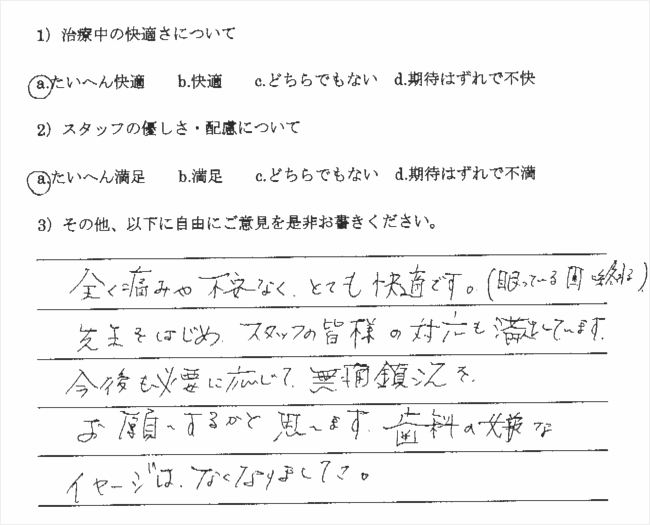 1）治療中の快適さについて
a.たいへん快適　b.快適　c.どちらでもない　d.期待はずれで不快
2）スタッフの優しさ・配慮について
a.たいへん満足　b.満足　c.どちらでもない　d.期待はずれで不満
3）その他、以下に自由にご意見を是非お書きください。
全く痛みや不安なく、とても快適です。（眠っている間に終わる）
先生をはじめ、スタッフの皆様の対応も満足しています。
今後も必要に応じて、無痛鎮沈を、
お願いするかと思います。歯科の嫌な
イヤージは、なくなりましてさ。